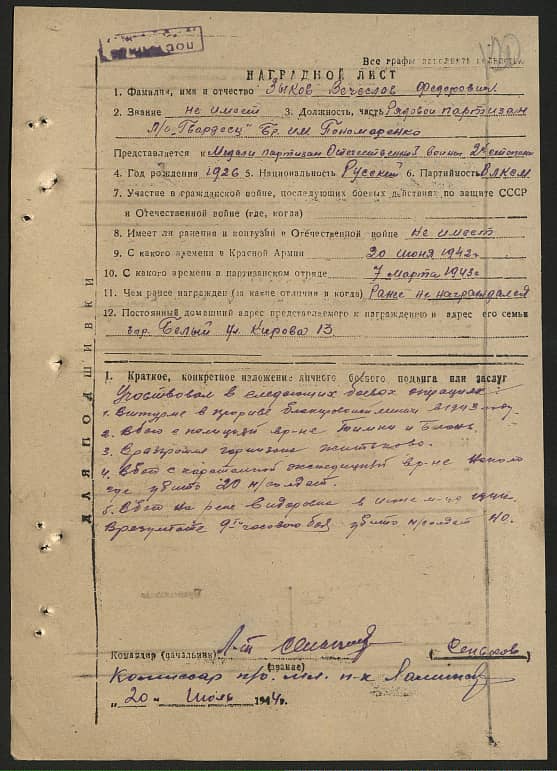 Все графы заполнять полностью
НАГРАДНОЙ ЛИСТ
1. Фамилия, имя и отчество Зыков Вечеслов Федорович
2. Звание не имеет 3. Должность, часть Рядовой партизан
п/о "Гвардеец" бр. им Пономаренко
Представляется к Медали партизан Отечественной войны 2й степени
4. Год рождения 1926 5. Национальность Русский 6. Партийность ВЛКСМ
7. Участие в гражданской войне, последующих боевых действиях по защите СССР
и Отечественной войне (где, когда)
8. Имеет ли ранения и контузии в Отечественной войне не имеет
9. С какого времени в Красной Армии 20 июня 1942г
10. С какого времени в партизанском отряде 7 марта 1943г
11. Чем ранее награжден (за какие отличия и когда) Ранее не награждался
12. Постоянный домашний адрес представляемого к награждению и адрес его семьи
гор. Белый ул. Кирова 13
ДЛЯ ПОДШИВКИ
1. Краткое, конкретное изложение личного боевого подвига или заслуг
Участвовал в следующих боевых операциях:
1. В штурме в прорыве линии в 1943 году
2. В бою с полицией в р-не и
3. В разгроме гарнизона Житьково.
4. В бою с карательной экспедицией в р-не
где убито 20 н/солдат.
5. В бою на реке в июне м-це
В результате 9ти часового боя убито н/солдат 40.
Командир (начальник) Л-т
(звание)
Комиссар п/о. мл. л-т
"20" Июль 1944г.